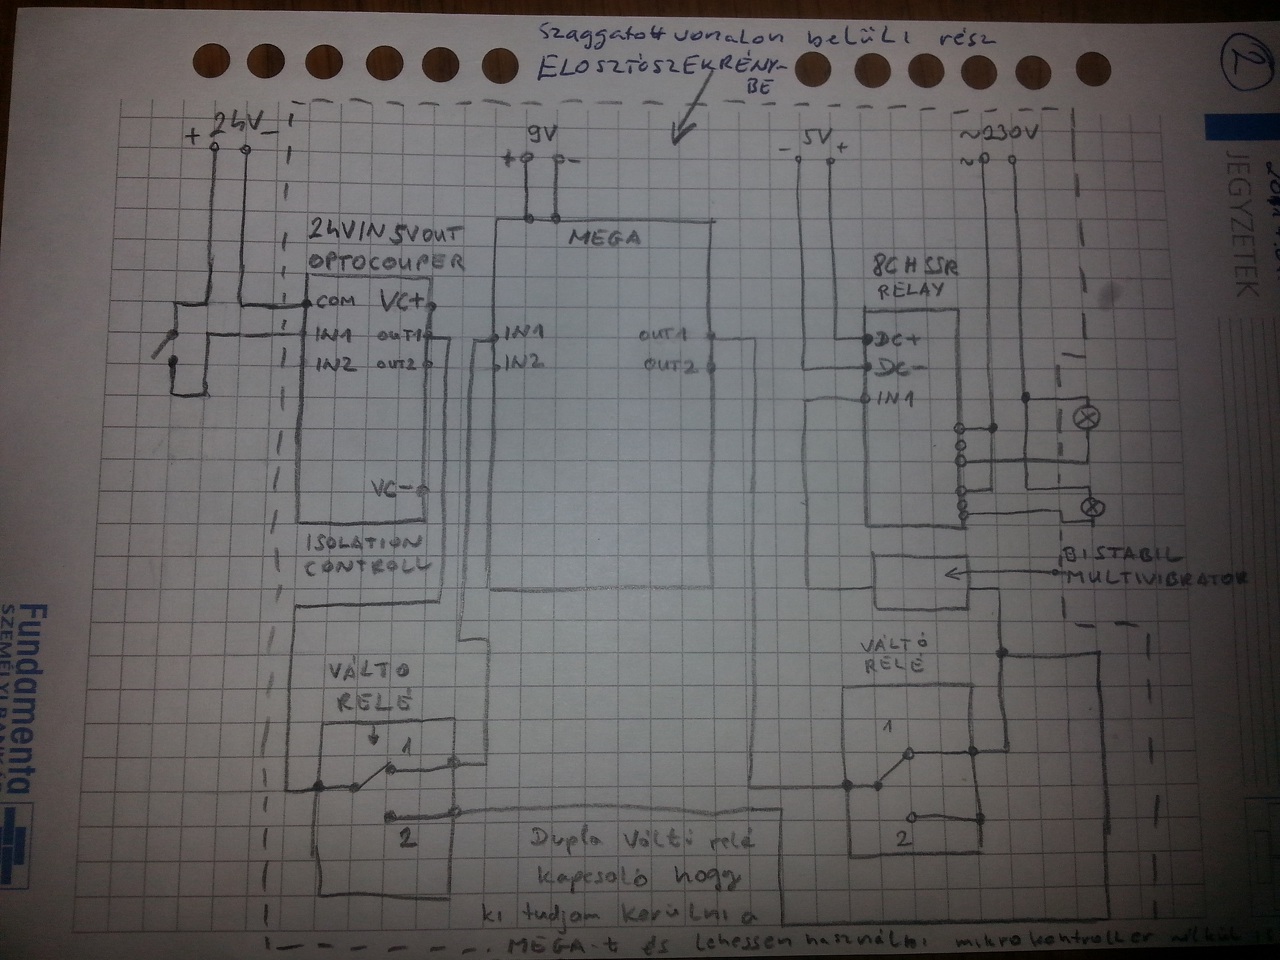 Szaggatott vonalon belüli rész
ELOSZTÓSZEKRÉNY-
BE
2
JEGYZETEK
+ 24V -
9V
+ -
- 5V +
~230V
~
24VIN 5VOUT
OPTOCOUPER
COM VC+
IN1 OUT1
IN2 OUT2
VC-
ISOLATION
CONTROLL
MEGA
IN1 OUT1
IN2 OUT2
8CH SSR
RELAY
DC+
DC-
IN1
BISTABIL
MULTIVIBRATOR
VÁLTO
RELÉ
1
2
VÁLTÓ
RELÉ
1
2
Dupla váltó relé
kapcsoló hogy
ki tudjam kerülni a
MEGA-t és lehessen használni mikrokontroller nélkül is
Fundamenta